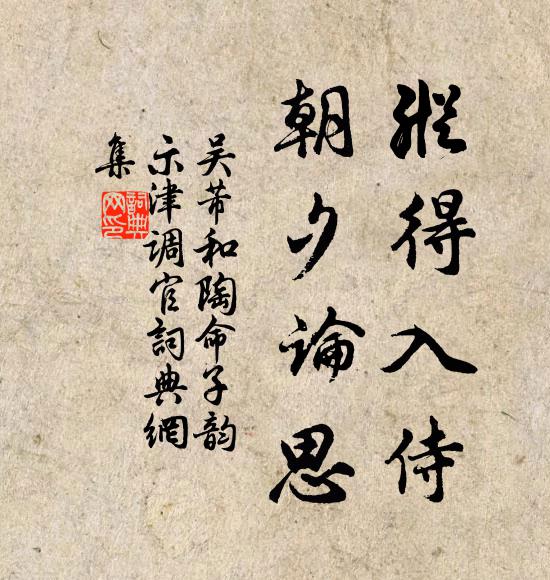 縱得入侍
朝夕論思
吴芾和陶命子韵
示津調官詞典網
集
詞典
网印